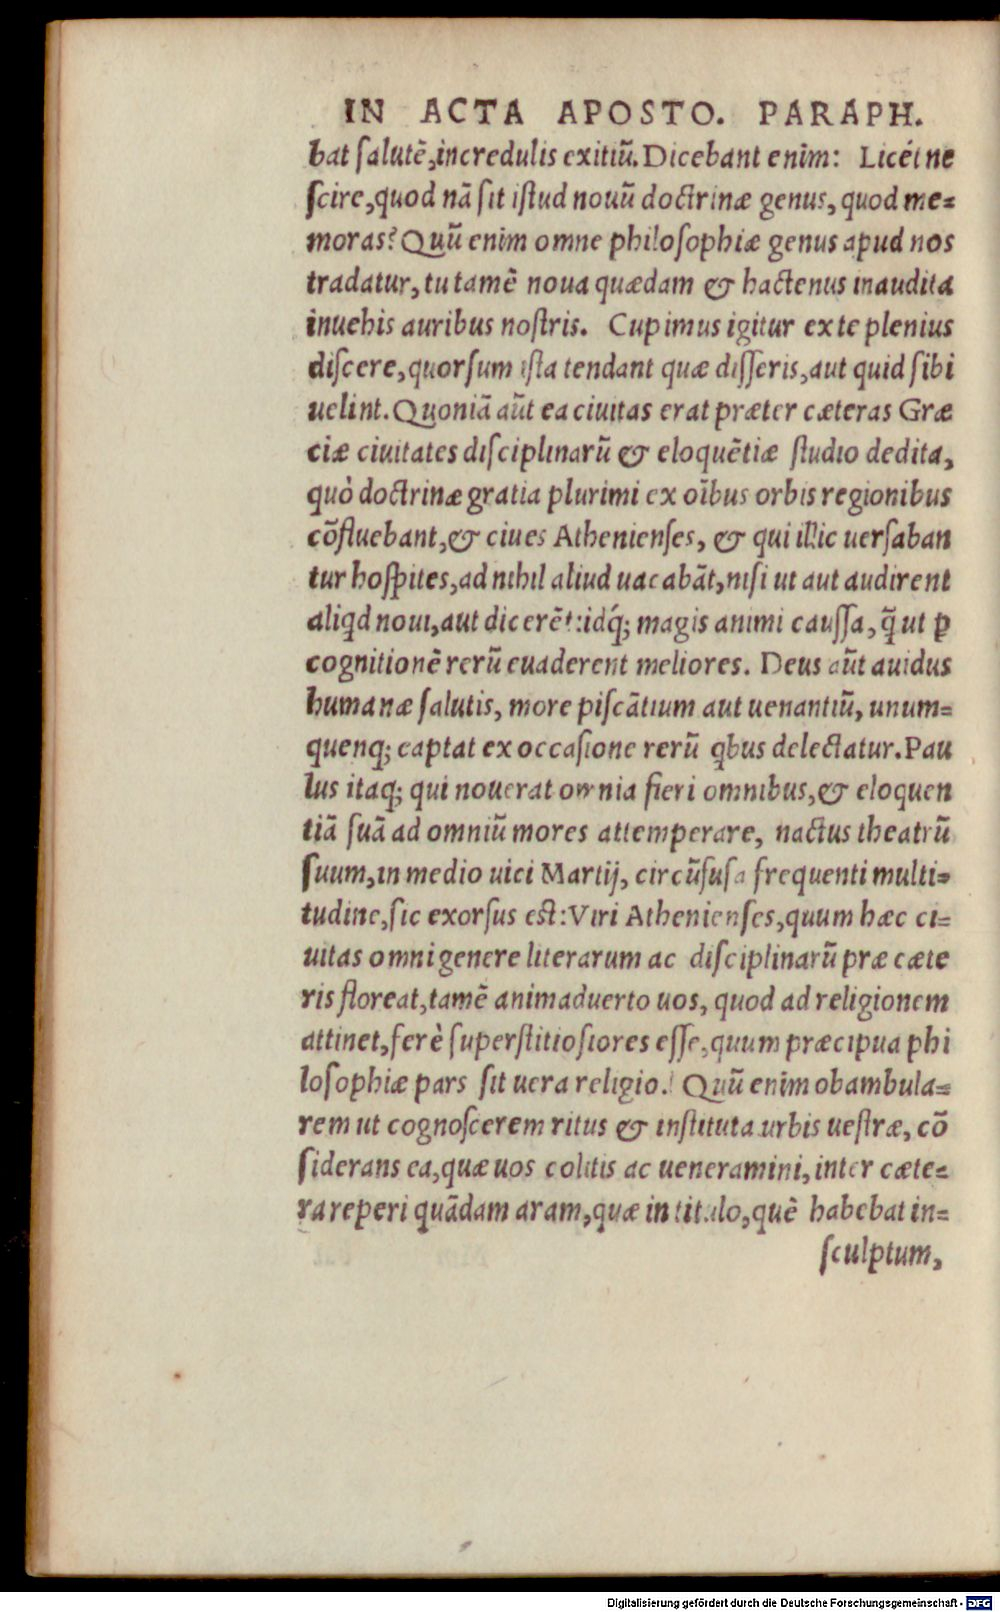 IN ACTA APOSTO. PARAPH.
bat ſalutē, incredulis exitiū. Dicebant enim: Licét ne
ſcire, quod nā ſit iſtud nouū doctrinæ genus, quod me⸗
moras? Quū enim omne philoſophiæ genus apud nos
tradatur, tu tamē noua quædam & hactenus inaudita
inuehis auribus noſtris. Cupimus igitur ex te plenius
diſcere, quorſum iſta tendant quæ diſſeris, aut quid ſibi
uelint. Quoniā aūt ea ciuitas erat præter cæteras Græ
ciæ ciuitates diſciplinarū & eloquētiæ ſtudio dedita,
quò doctrinæ gratia plurimi ex oībus orbis regionibus
cōfluebant, & ciues Athenienſes, & qui illic uerſaban
tur hoſpites, ad nihil aliud uacabāt, niſi ut aut audirent
aliꝗd noui, aut dicerēt: idq́; magis animi cauſſa, q̄ ut ꝑ
cognitionē rerū euaderent meliores. Deus aūt auidus
humanæ ſalutis, more piſcātium aut uenantiū, unum⸗
quenq; captat ex occaſione rerū ꝗbus delectatur. Pau
lus itaq; qui nouerat omnia fieri omnibus, & eloquen
tiā ſuā ad omniū mores attemperare, nactus theatrū
ſuum, in medio uici Martij, circūfuſa frequenti multi⸗
tudine, ſic exorſus eſt: Viri Athenienſes, quum hæc ci⸗
uitas omni genere literarum ac diſciplinarū præ cæte
ris floreat, tamē animaduerto uos, quod ad religionem
attinet, ferè ſuperſtitioſiores eſſe, quum præcipua phi
loſophiæ pars ſit uera religio. Quū enim obambula⸗
rem ut cognoſcerem ritus & inſtituta urbis ueſtræ, cō
ſiderans ea, quæ uos colitis ac ueneramini, inter cæte⸗
ra reperi quādam aram, quæ in titulo, quē habebat in⸗
ſculptum,
Digitalisierung gefördert durch die Deutsche Forschungsgemeinschaft - DFG